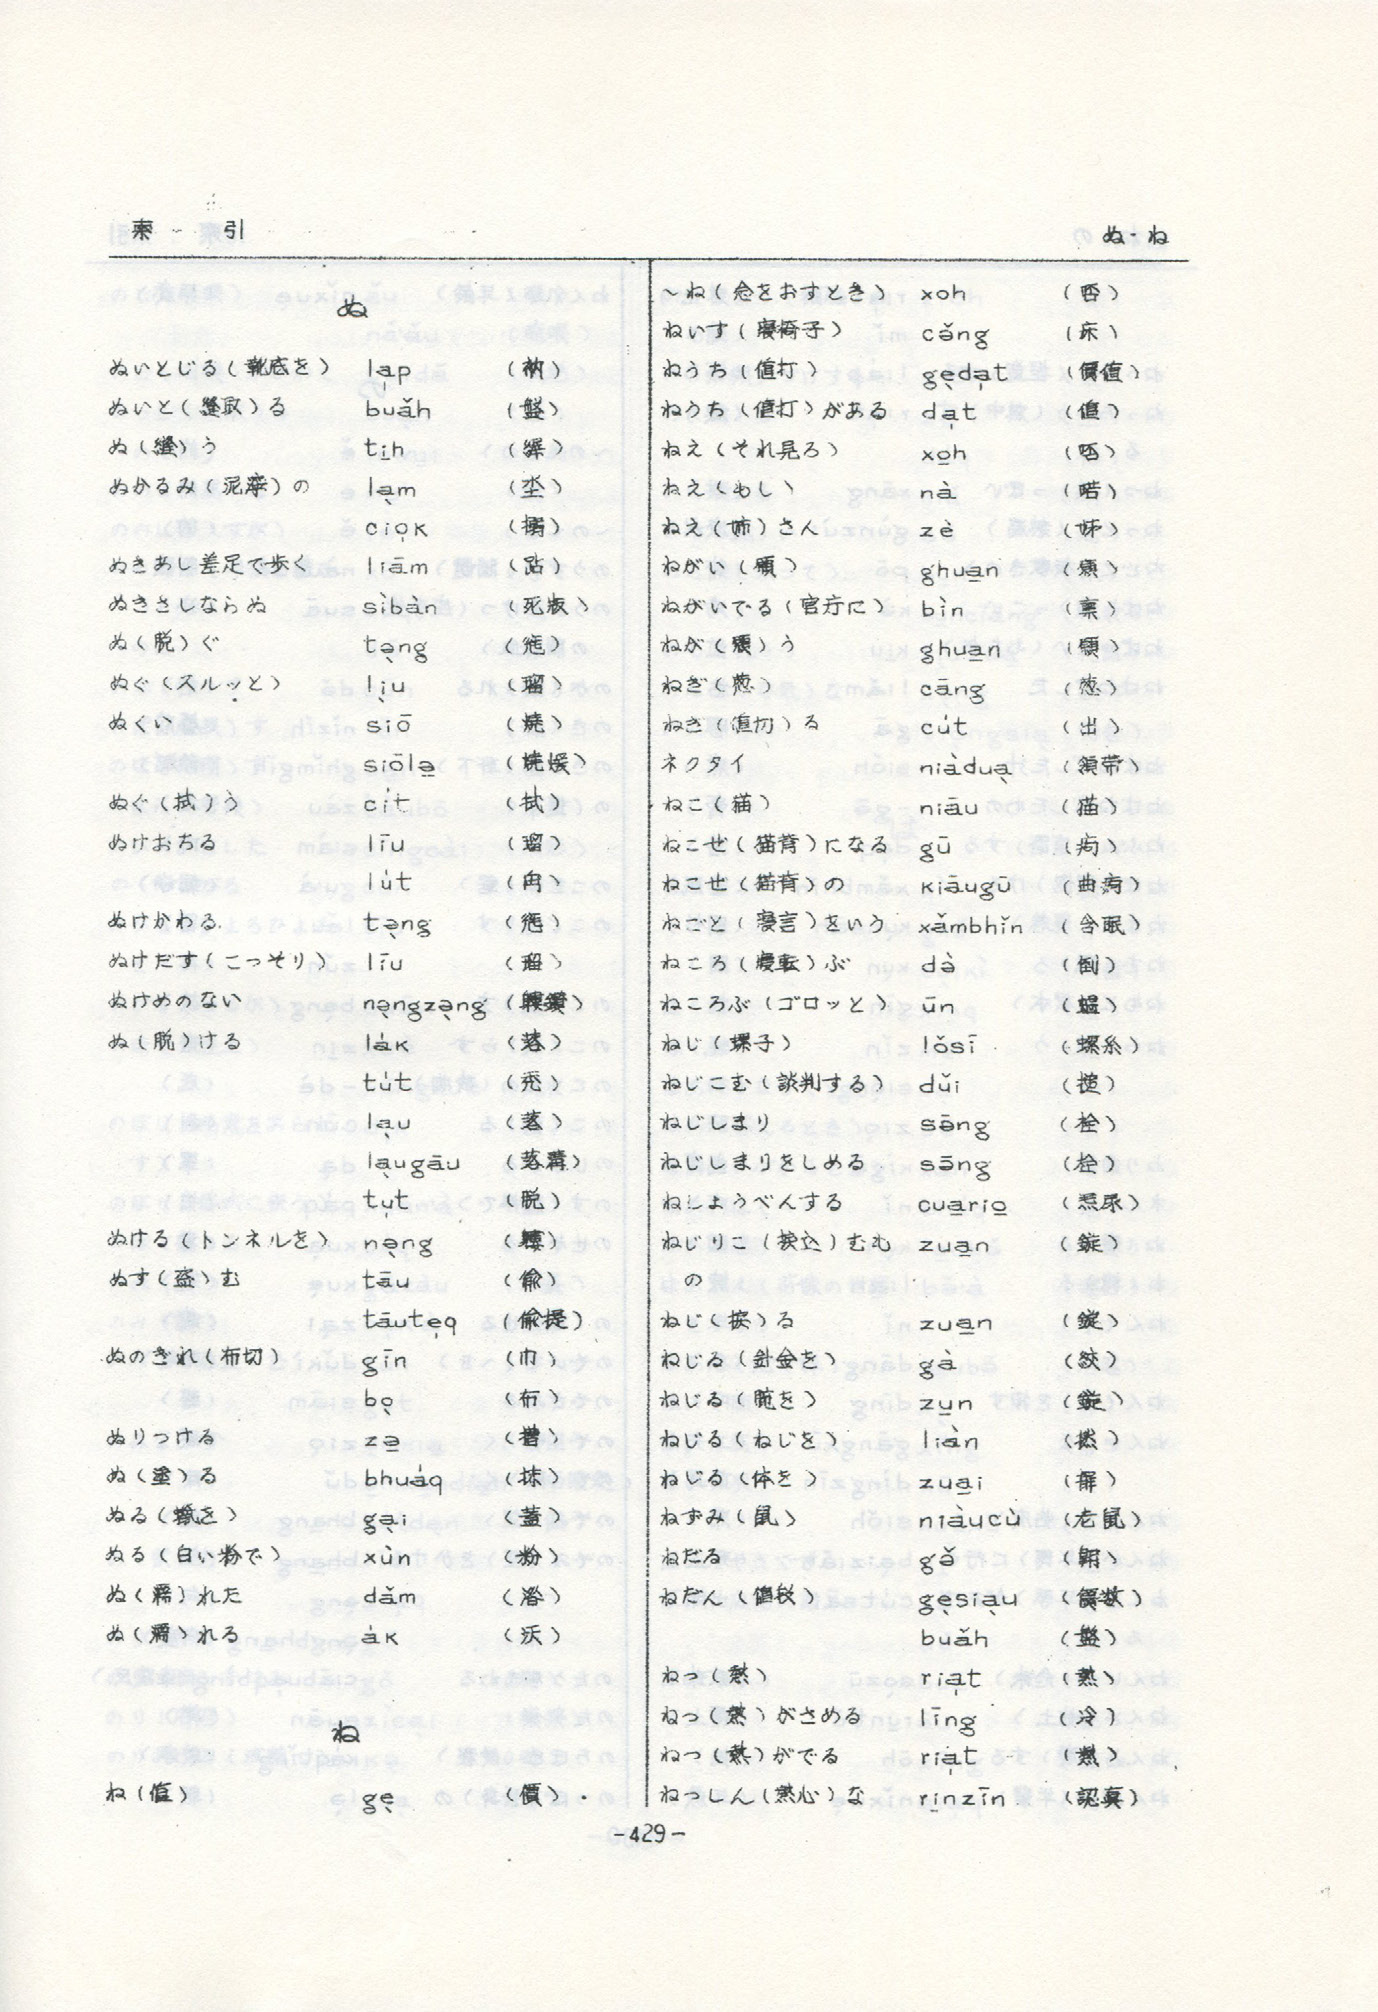 索 引
ぬ・ね
ぬ
ぬいとじる(靴底を) la̩p (衲)
ぬいと(縫取)る buǎh (盤)
ぬ(縫)う ti̠h
ぬかるみ(泥濘)の la̩m (坔)
cio̩k
ぬきあし差足で歩く liām (跕)
ぬきさしならぬ sìbàn (死版)
ぬ(脱)ぐ tə̩ng
ぬぐ(スルッと) li̩u (瑠)
ぬくい siō (燒)
siōlə̠
ぬぐ(拭)う cı̍t (拭)
ぬけおちる līu (瑠)
lu̍t
ぬけかわる tə̩ng
ぬけだす(こっそり) līu (瑠)
ぬけめのない nə̩ngzə̩ng
ぬ(脱)ける la̍k (落)
tu̍t
la̩u (落)
la̩ugāu (落溝)
tu̩t (脱)
ぬける(トンネルを) nə̩ng
ぬす(盗)む tāu (偸)
tāute̩q (偸提)
ぬのきれ(布切) gīn (巾)
bo̩ (布)
ぬりつける zə̠
ぬ(塗)る bhua̍q (抹)
ぬる(糊を) ga̠i (蓋)
ぬる(白い粉で) xùn (粉)
ぬ(濡)れた dǎm
ぬ(濡)れる a̍k (沃)
ね
ね(値) ge̩ (價)
〜ね(念をおすとき) xoh
ねいす(寝椅子) cə̌ng (床)
ねうち(値打) ge̩da̩t (價値)
ねうち(値打)がある da̩t (値)
ねえ(それ見ろ) xo̠h
ねえ(もし) nà
ねえ(姉)さん zè (姉)
ねがい(願) ghua̠n (願)
ねがいでる(官庁に) bìn (稟)
ねが(願)う ghua̠n (願)
ねぎ(葱) cāng (葱)
ねぎ(値切)る cu̍t (出)
ネクタイ niàdua̩ (領帯)
ねこ(猫) niāu (猫)
ねこぜ(猫背)になる gū (痀)
ねこぜ(猫背)の kiāugū (曲痀)
ねごと(寝言)をいう xǎmbhǐn (含眠)
ねころ(寝転)ぶ də̀ (倒)
ねころぶ(ゴロッと) ūn
ねじ(螺子) lǒsī (螺糸)
ねじこむ(談判する) dǔi (搥)
ねじしまり sə̄ng (栓)
ねじしまりをしめる sə̄ng (栓)
ねしょうべんする cua̠rio̠
ねじりこ(捩込)むむ zua̠n
の
ねじ(捩)る zua̠n
ねじる(針金を) gà (絞)
ねじる(腕を) zu̠n
ねじる(ねじを) liàn (撚)
ねじる(体を) zua̠i
ねずみ(鼠) niàucù (老鼠)
ねだる gə̌
ねだん(値段) ge̩sia̩u (價数)
buǎh (盤)
ねつ(熱) ria̩t (熱)
ねつ(熱)がさめる līng (冷)
ねつ(熱)がでる ria̩t (熱)
ねっしん(熱心)な ri̠nzīn (認真)
-429-